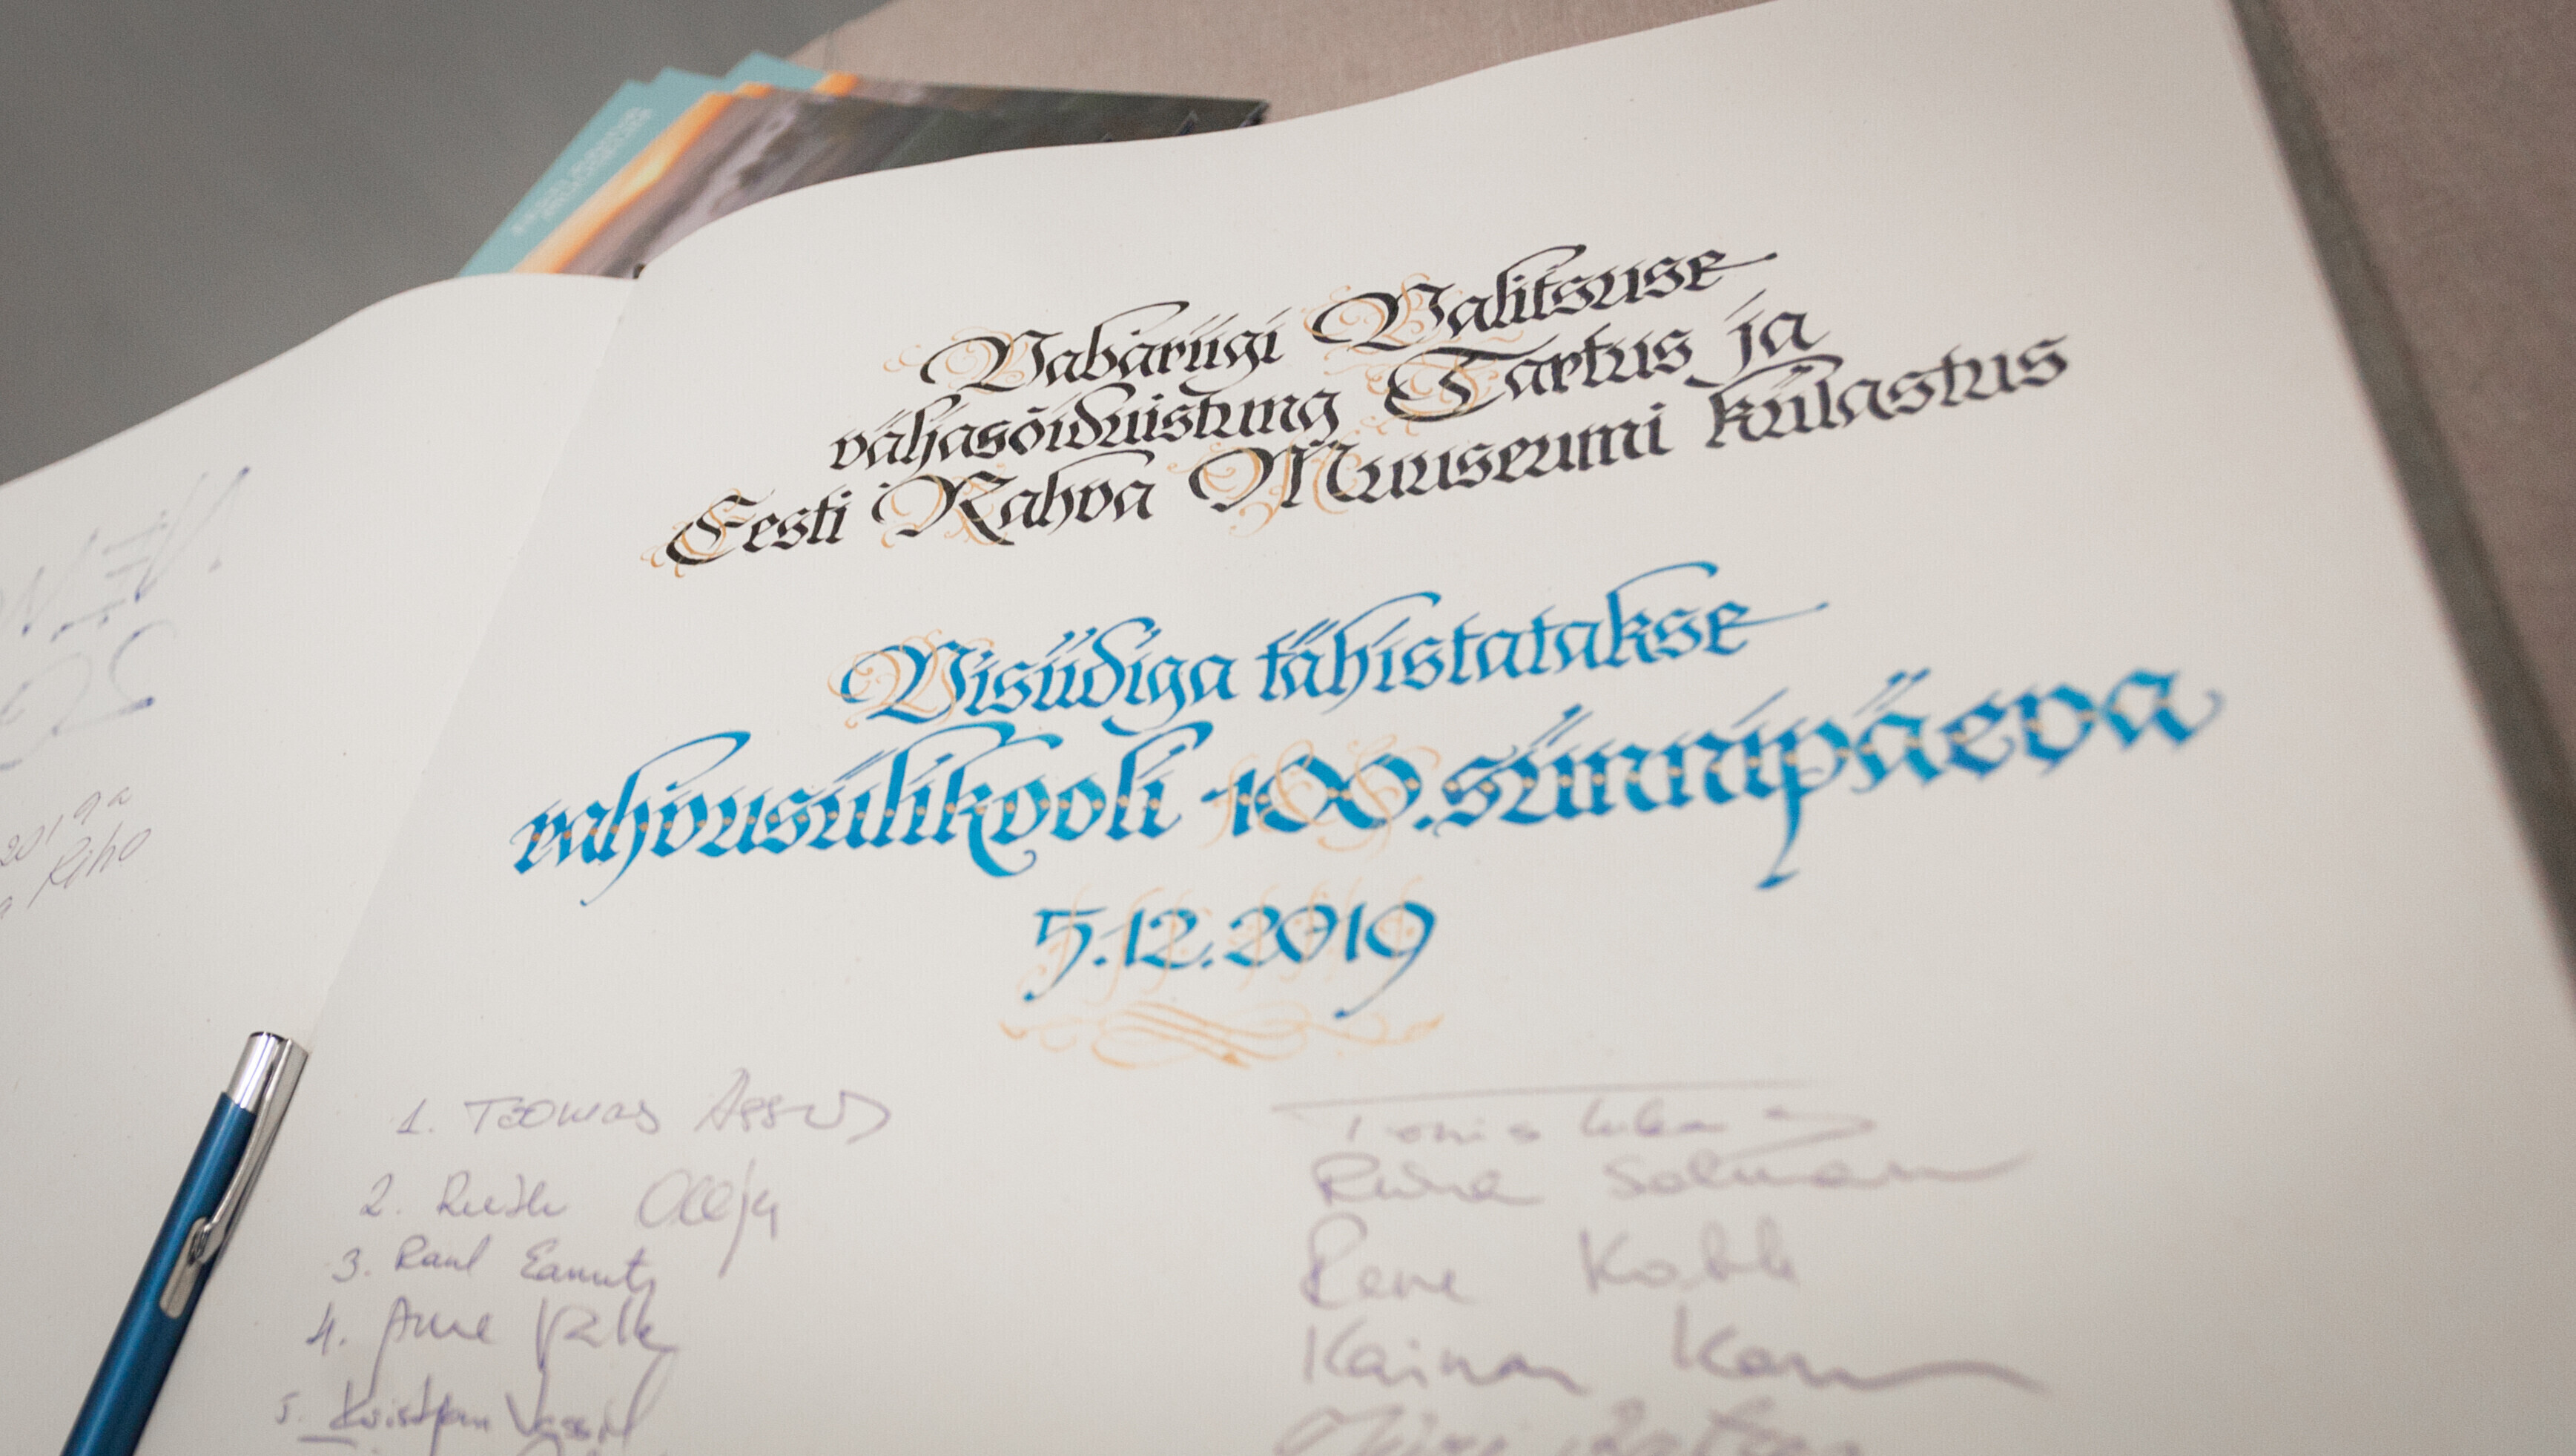 Vabariigi Valitsuse
väljasõiduistung Tartus ja
Eesti Rahva Muuseumi külastus
Visiidiga tähistatakse
rahvusülikooli 100. sünnipäeva
5.12.2019
1. Toomas Asser
2.
3. Raul Eamets
4.
5. Kristjan Vassil
Tõnis Lukas
Riina Solman
Rene Kokk
Kaimar Karu
2019a
Riho